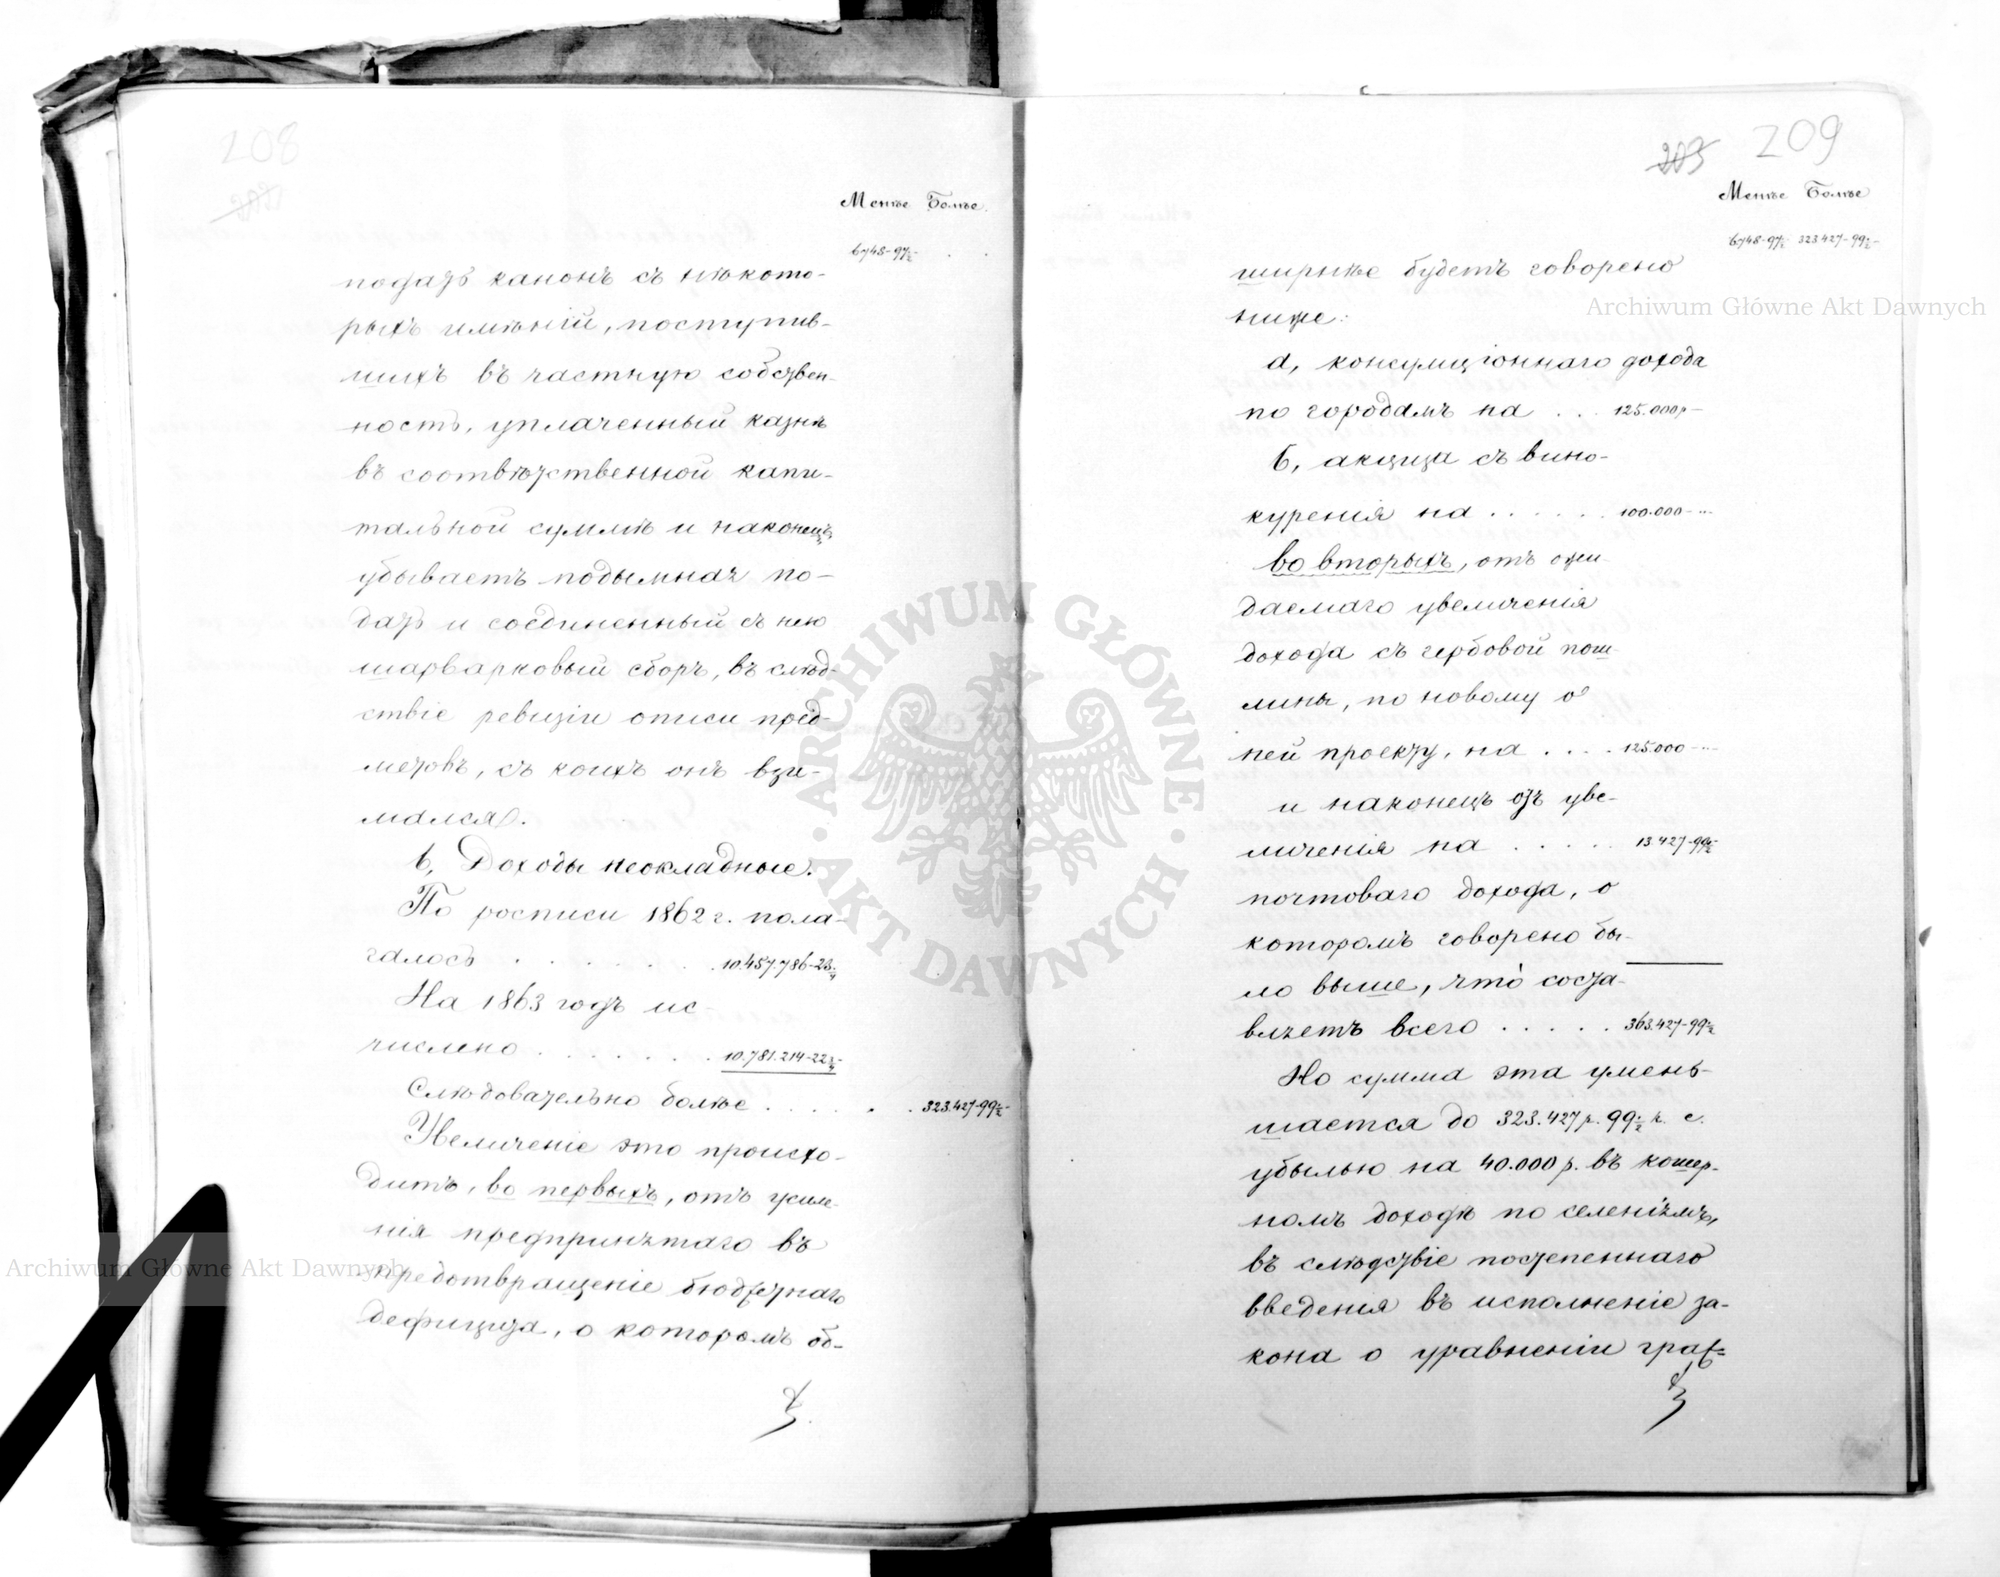 208
Менѣе Болѣе.
6748-97½
подать канонъ съ нѣкото-
рыхъ имѣній, поступив-
шихъ въ частную собствен-
ность, уплаченный казнѣ
въ соотвѣтственной капи-
тальной суммѣ и наконецъ
убываетъ подымная по-
дать и соединенный съ нею
шарварковый сборъ, въ слѣд-
ствіе ревизіи описи пред-
метовъ, съ коихъ онъ взи-
мался.
б, Доходы неокладные.
По росписи 1862 г. пола-
галось . . . . . . 10.457.786-23
На 1863 годъ ис-
числено . . . . . . 10.781.214-22
Слѣдовательно болѣе . . . . . 323.427-99½
Увеличеніе это происхо-
дитъ, во первыхъ, отъ усиле-
нія предпринятаго въ
предотвращеніе бюджетнаго
дефицита, о которомъ об-
203 209
Менѣе Болѣе
6748-97½ 323.427-99½
ширнѣе будетъ говорено
ниже:
а, консумціоннаго дохода
по городамъ на . . . 125.000р-
б, акциза съ вино-
куренія на . . . . . . 100.000-..
во вторыхъ, отъ ожи-
даемаго увеличенія
дохода съ гербовой пош-
лины, по новому о
ней проекту, на . . . . 125.000-..
и наконецъ отъ уве-
личенія на . . . . . 13.427-99½
почтоваго дохода, о
которомъ говорено бы-
ло выше, что соста-
вляетъ всего . . . . . 363.427-99½
Но сумма эта умень-
шается до 323.427 р. 99½ к. с.
убылью на 40.000 р. въ кошер-
номъ доходѣ по селеніямъ,
въ слѣдствіе постепеннаго
введенія въ исполненіе за-
кона о уравненіи граж=
Archiwum Główne Akt Dawnych
Archiwum Główne Akt Dawnych
ARCHIWUM GŁÓWNE · AKT DAWNYCH ·